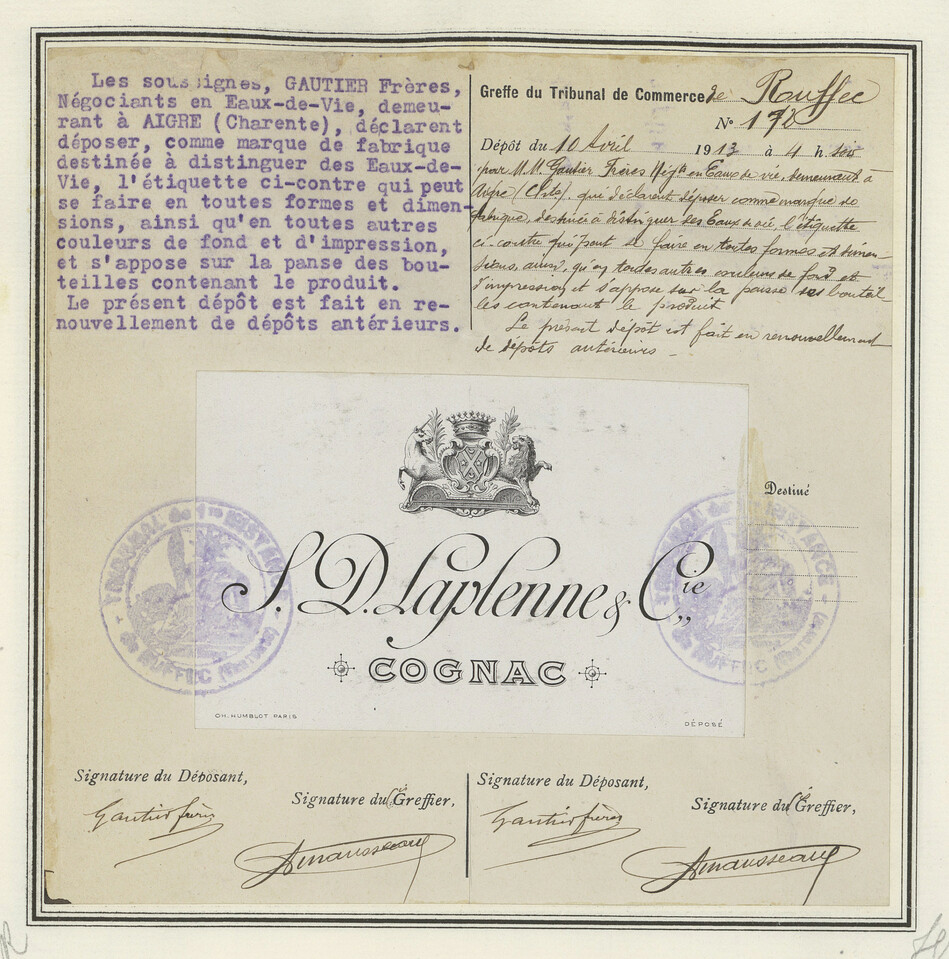 Les soussignes, GAUTIER Frères,
Négociants en Eaux-de-Vie, demeu-
rant à AIGRE (Charente), déclarent
déposer, comme marque de fabrique
destinée à distinguer des Eaux-de-
Vie, l'étiquette ci-contre qui peut
se faire en toutes formes et dimen-
sions, ainsi qu'en toutes autres
couleurs de fond et d'impression,
et s'appose sur la panse des bou-
teilles contenant le produit.
Le présent dépôt est fait en re-
nouvellement de dépôts antérieurs.
Greffe du Tribunal de Commerce de Ruffec
N° 172
Dépôt du 10 Avril 1913 à 4 h soir
par M.M. Gautier Frères Négts en Eaux de vie, demeurant à
Aigre (Chte), qui déclarent déposer comme marque de
fabrique, destinée à distinguer des Eaux de vie, l'étiquette
ci-contre qui peut se faire en toutes formes et dimen-
sions, ainsi qu'en toutes autres couleurs de fond et
d'impression et s'appose sur la panse des bouteil-
les contenant le produit
Le présent dépôt est fait en renouvellement
de dépôts antérieurs
S. D. Laplenne & Cie
COGNAC
CH. HUMBLOT PARIS
DÉPOSÉ
Destiné
TRIBUNAL de 1re INSTANCE
de RUFFEC (Charente)
TRIBUNAL de 1re INSTANCE
de RUFFEC (Charente)
Signature du Déposant,
Signature du Greffier,
Gautier frères
Signature du Déposant,
Signature du Greffier,
Gautier frères